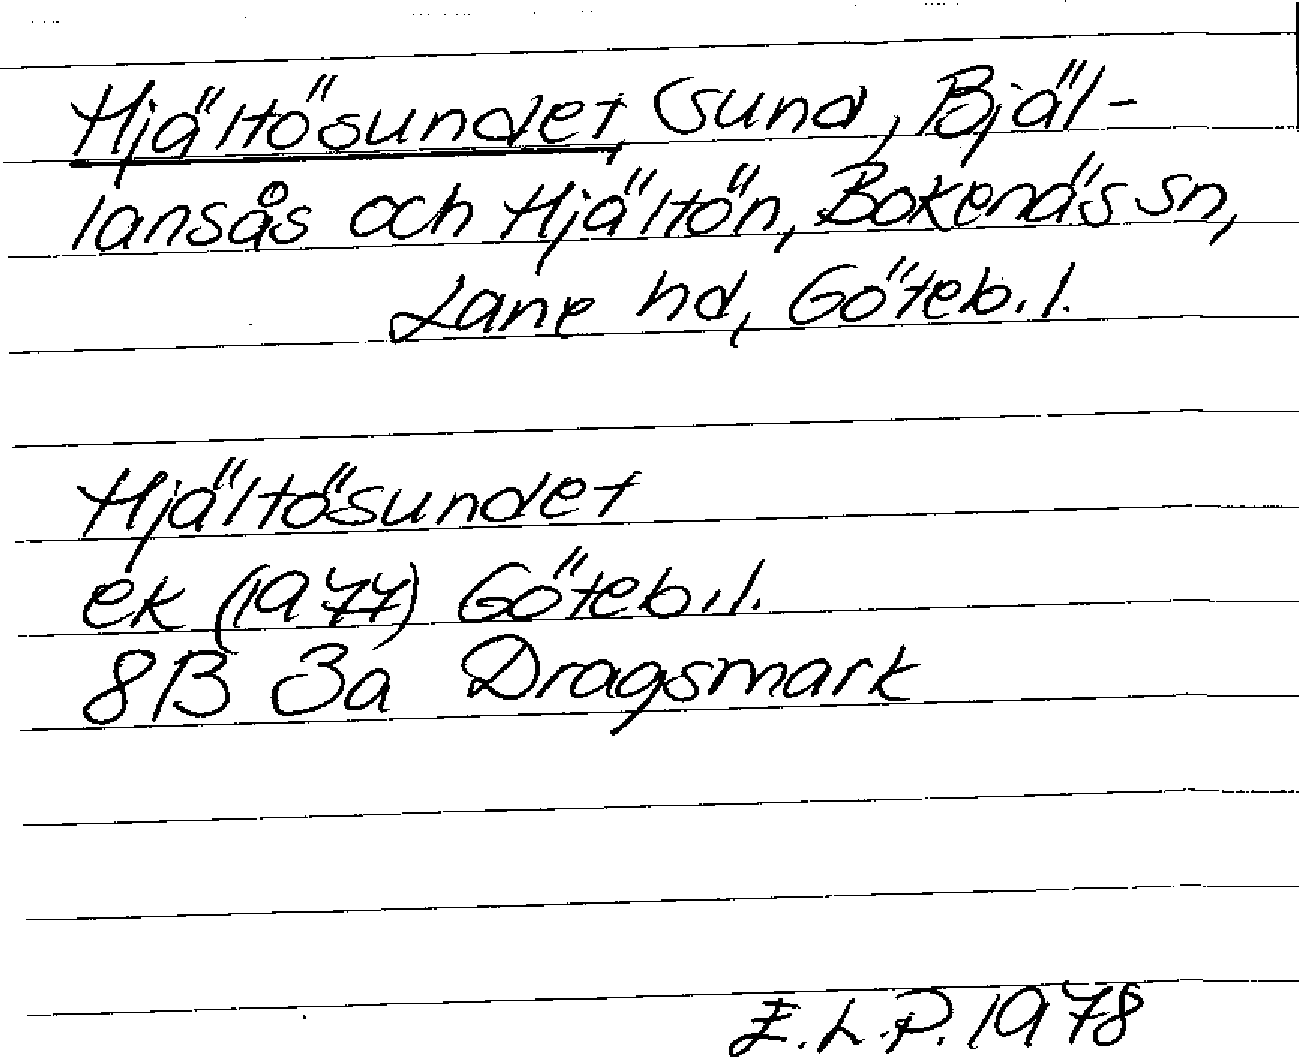 Hjältösundet, sund, Bjäl-
lansås och Hjältön, Bokenäs sn,
Lane hd, Göteb.l.
Hjältösundet
ek (1977) Göteb.l.
8B 3a Dragsmark
E.L.P. 1978